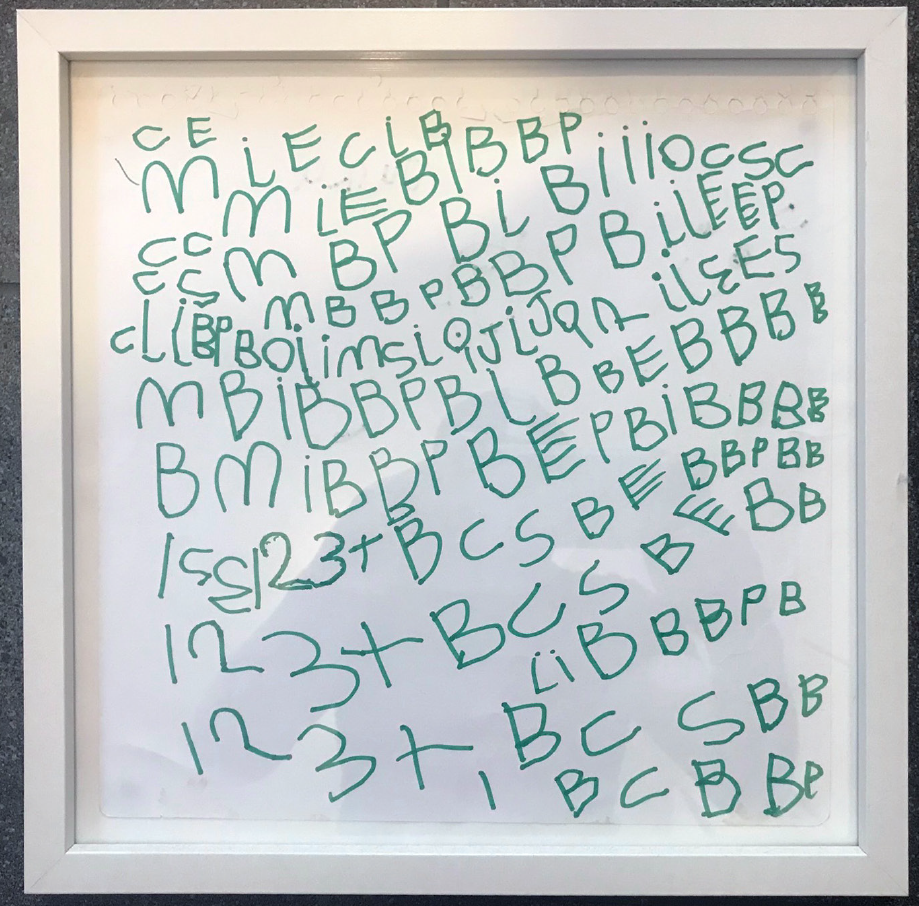 C E
M i E C L B I B B P i i i O C S C
M i E B P B L B i L E E P
C C M B P B L B i L E E P
E C M B B P B B P B i L E E S
C L i E B P B O L i M S L O i J L i J O
M B i B B P B L B B E B B B B
B M i B B P B E P B i B B B B
B B E B B P B B
1 S S 1 2 3 + B C S B E B B
1 2 3 + B C S
L i B B B P B
1 2 3 + B C S B B
1 B C B B P